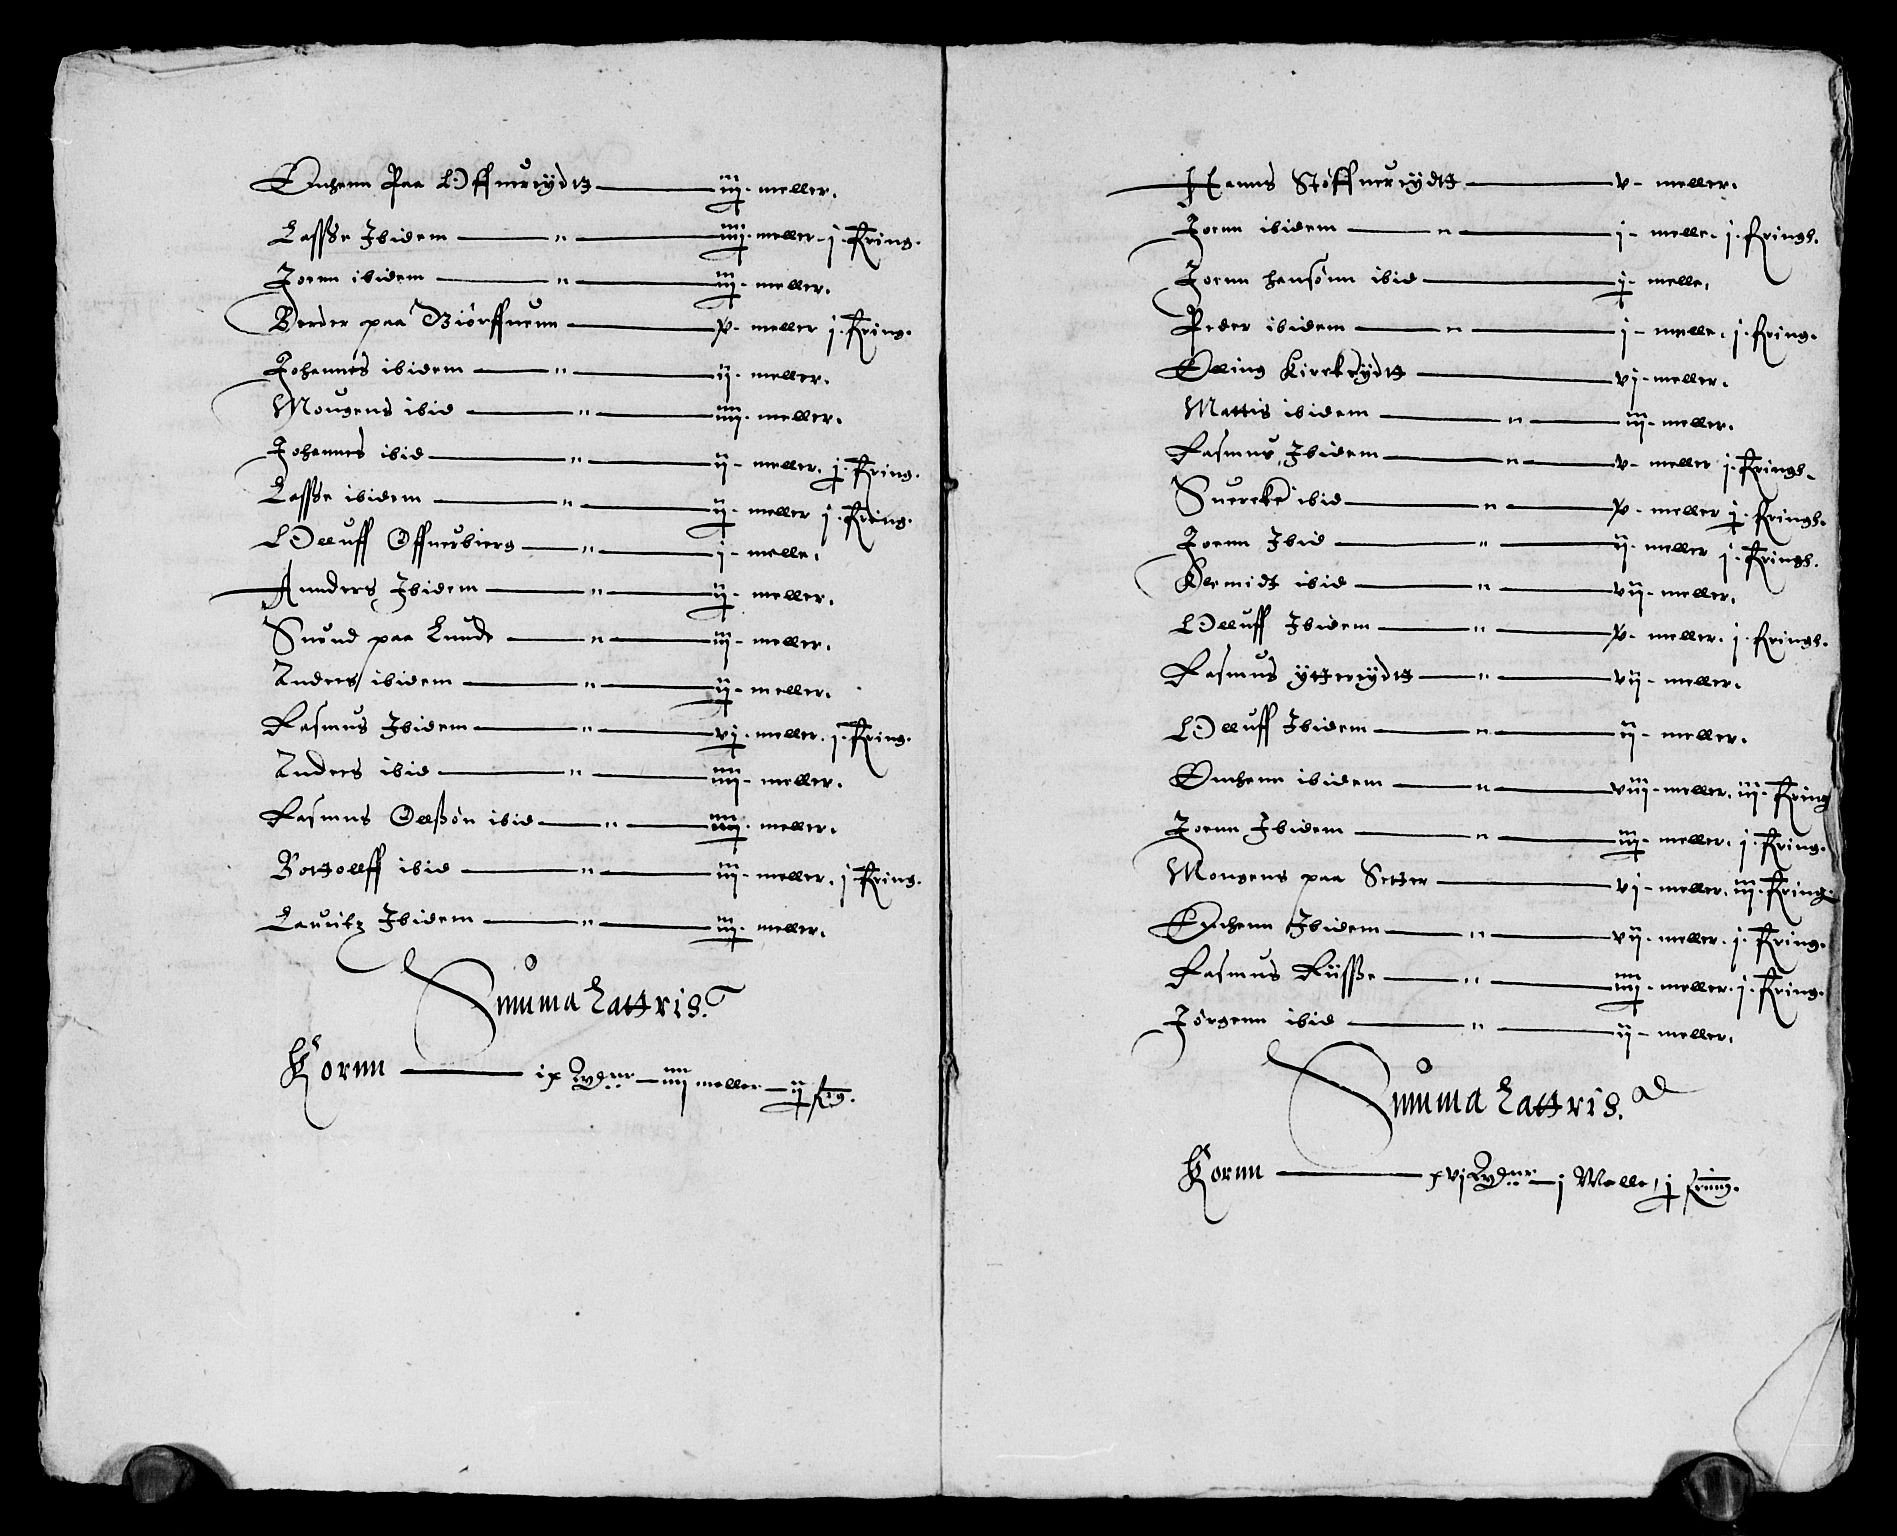 Enhenn Paa Offnerøydtt ——— iij - meller.
Lassße Ibidem ——— " ——— iiij - meller - j Kring.
Joenn ibidem ——— " ——— iiij - meller.
Peder paa Biørffuenn ——— x - meller j Kring.
Johannes ibidem ——— " ——— ij - meller.
Mougens ibid ——— " ——— iiij - meller.
Johannes ibid ——— " ——— ij - meller. j Kring.
Lassße ibidem ——— " ——— ij - meller j Kring.
Olluff Offnerbierg ——— " ——— j - melle.
Anders Ibidem ——— " ——— ij - meller.
Suend paa Lunde ——— " ——— iij - meller.
Anders ibidem ——— " ——— ij - meller.
Rasmus Ibidem ——— " ——— vj - meller. j Kring.
Anders ibid ——— " ——— iiij - meller.
Rasmus Ollßøn ibid ——— " ——— iiij - meller.
Bottollff ibid ——— " ——— iij - meller. j Kring.
Lauritz Ibidem ——— " ——— iij - meller.
Summa Lattris.
Kornn ——— ix — iiij meller — ij Kring.
Hanns Støffnerøydtt ——— v - meller.
Joenn ibidem ——— " ——— j - melle. j Kringh.
Joenn hansønn ibid ——— j - melle.
Peder ibidem ——— " ——— j - melle. j Kring.
Elling Kirckrydtt ——— vj - meller.
Mattis ibidem ——— " ——— iij - meller.
Rasmus Ibidem ——— " ——— v - meller j Kringh.
Suercke ibid ——— " ——— x - meller j Kringh.
Joenn Ibid ——— " ——— ij - meller j Kringh.
Clemidt ibid ——— " ——— vij - meller.
Olluff Ibidem ——— " ——— x - meller. j Kringh.
Rasmus ytterøydtt ——— " ——— vij - meller.
Olluff Ibidem ——— " ——— ij - meller.
Enhenn ibidem ——— " ——— viij - meller. iij Kring
Joenn Ibidem ——— " ——— iij - meller. j Kring.
Mougens paa Setter ——— vj - meller. iij Kring.
Enhenn Ibidem ——— " ——— vij - meller. j Kring.
Rasmus Riisße ——— " ——— iiij - meller. j Kring.
Jørgenn ibid ——— " ——— ij - meller.
Summa Lattris.
Kornn ——— xvj — j Melle, j Kring.